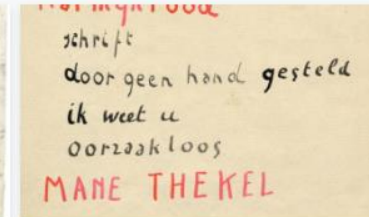 schrift
door geen hand gesteld
ik weet u
oorzaakloos
MANE THEKEL